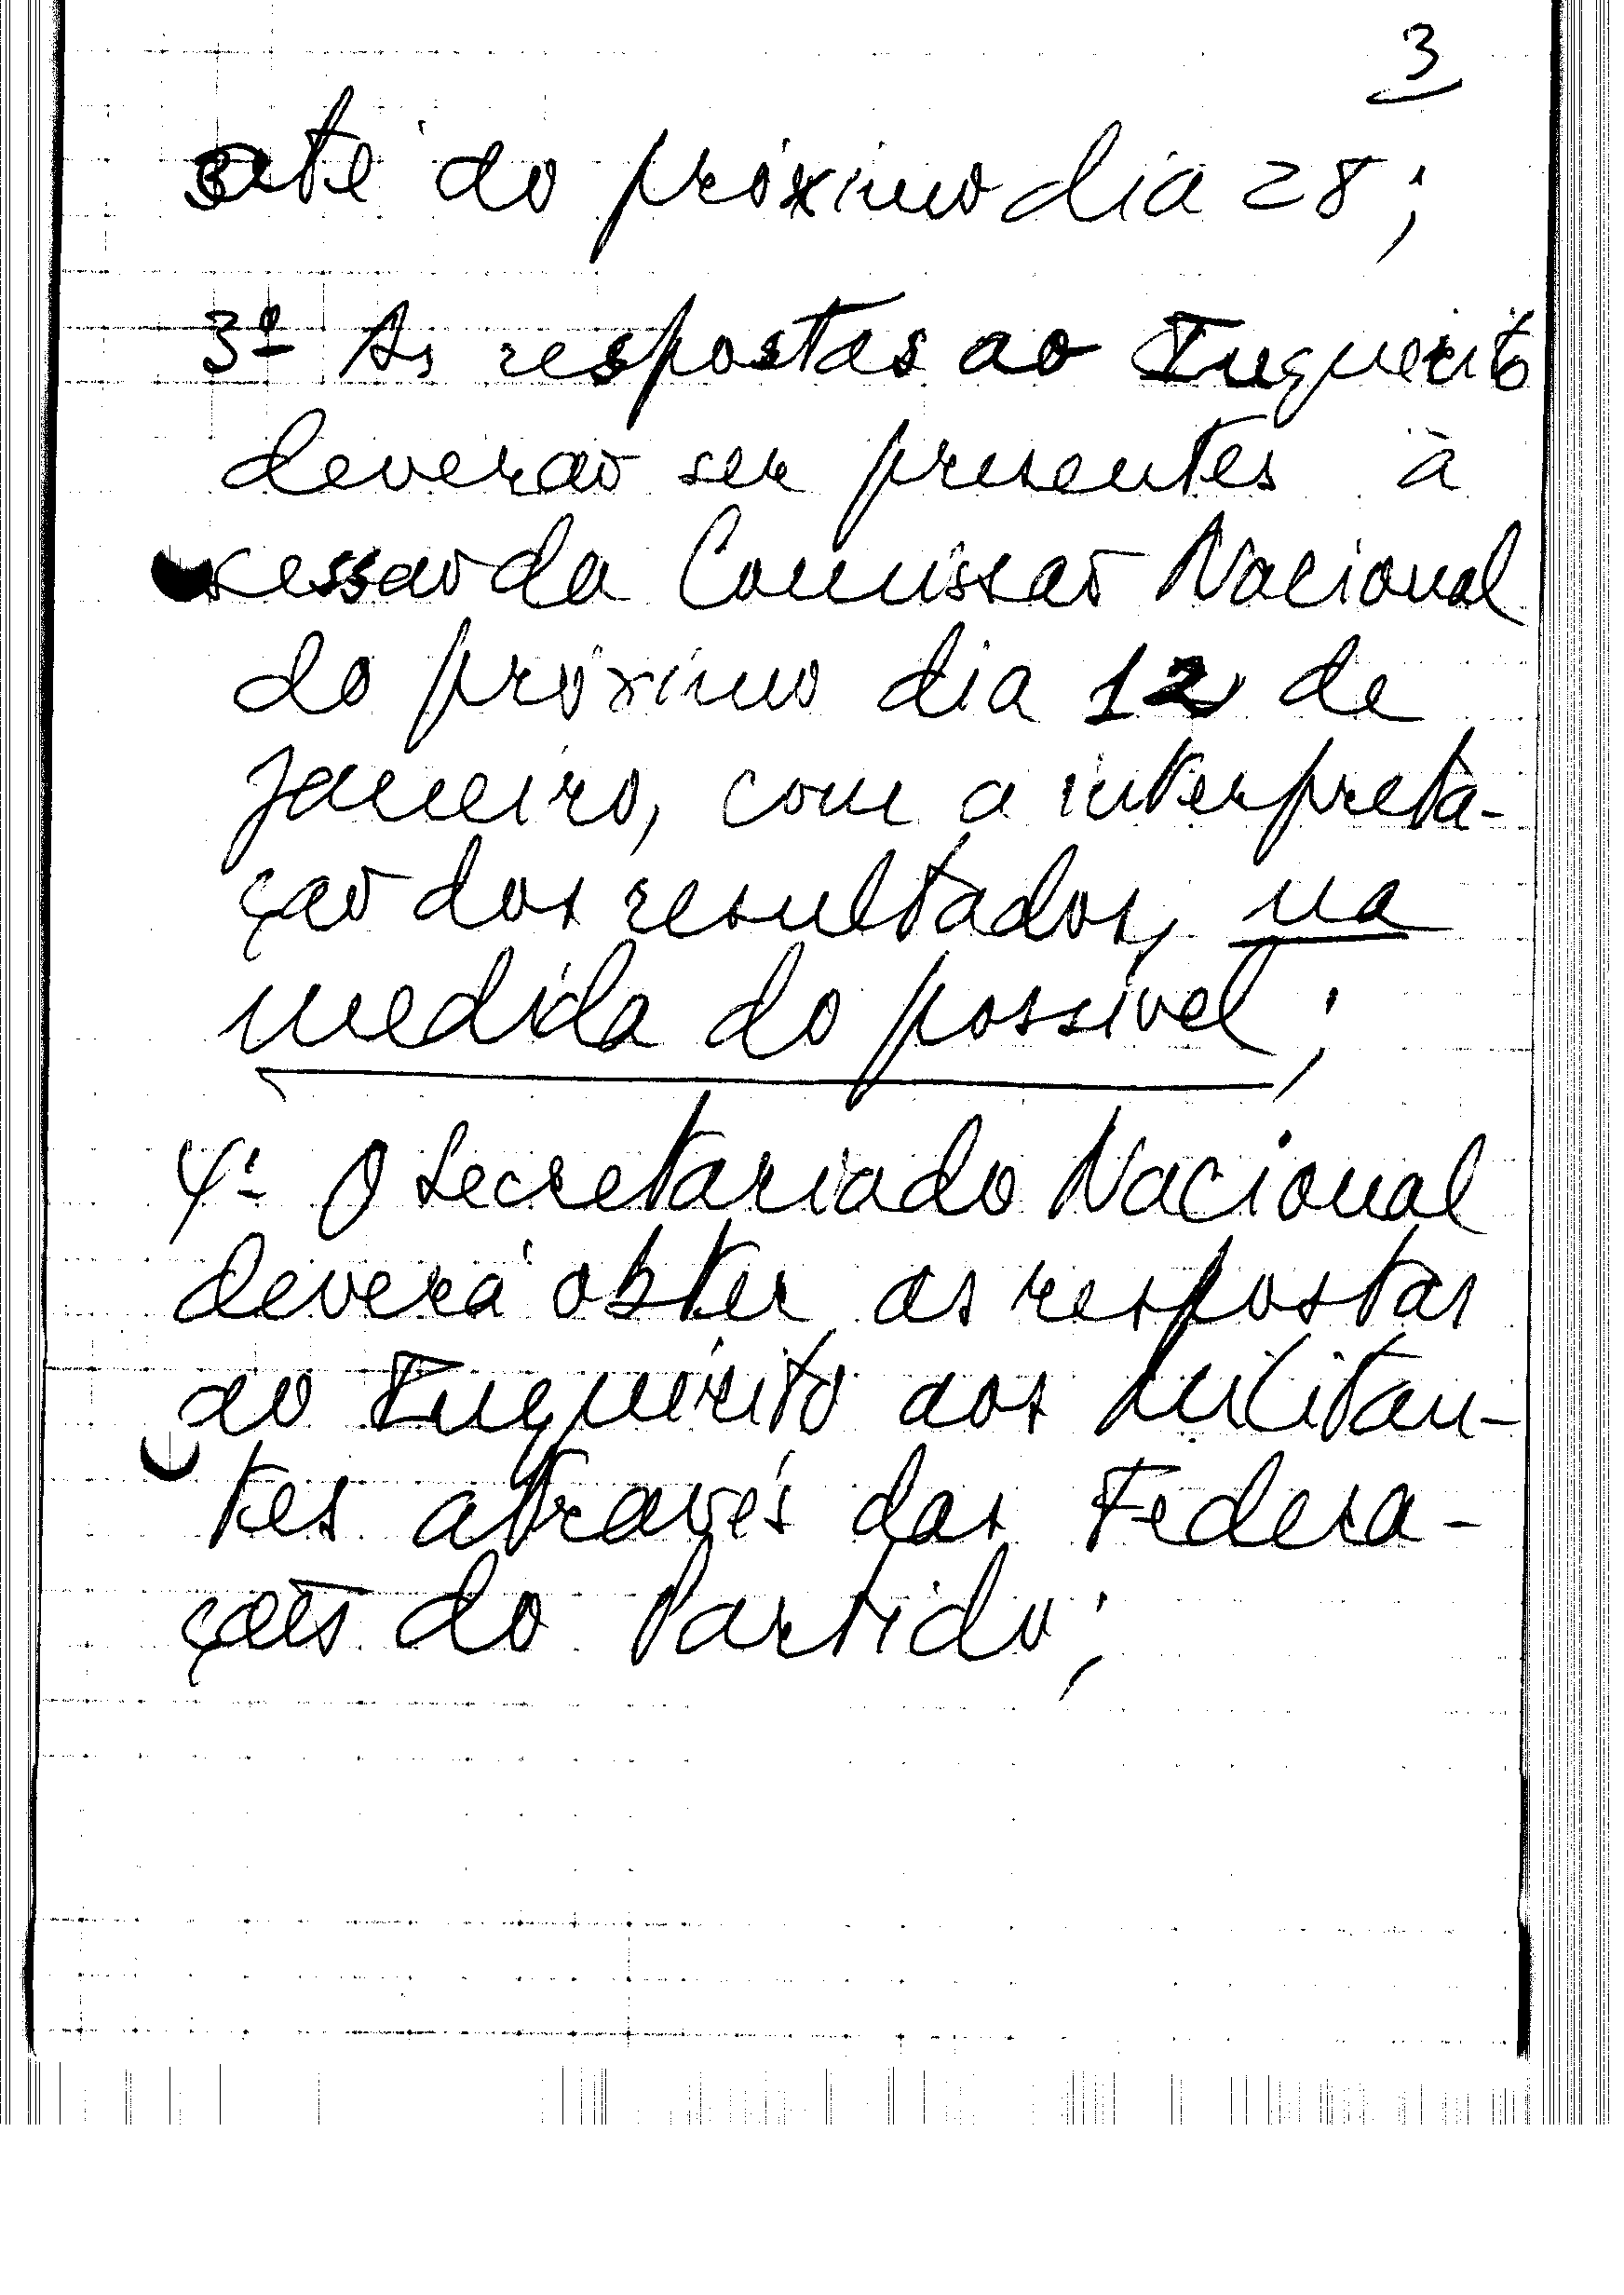 3
até do próximo dia 28;
3º- As respostas ao Inquérito
deverão ser presentes à
sessão da Comissão Nacional
do próximo dia 12 de
Janeiro, com a interpreta-
ção dos resultados, na
medida do possível;
4º- O Secretariado Nacional
deverá obter as respostas
ao Inquérito aos Militan-
tes através das Federa-
ções do Partido;